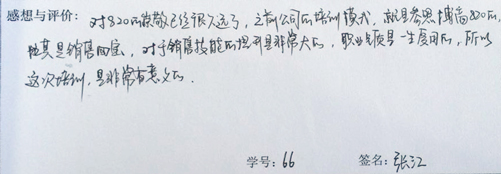 感想与评价：对820的崇敬已经很久远了，之前公司的培训模式，就是参照博商820的，
尤其是销售四层，对于销售技能的提升是非常大的，职业素质是一生受用的，所以
这次培训，是非常有意义的。
学号：66 签名：张江